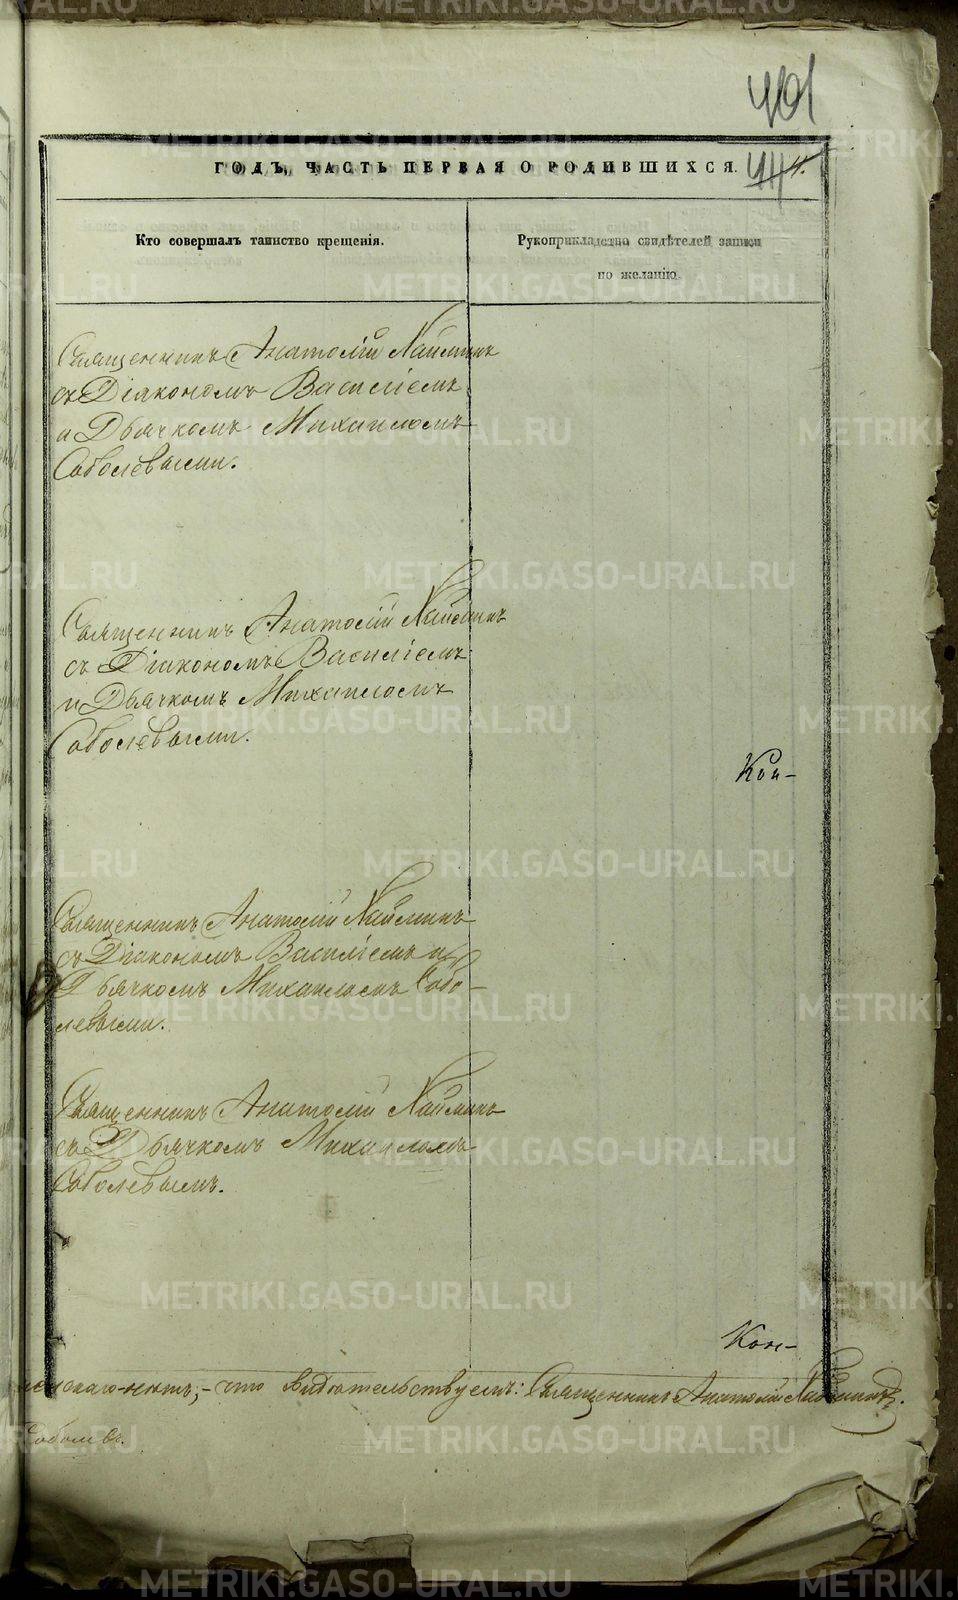 401
ГОДЪ, ЧАСТЬ ПЕРВАЯ О РОДИВШИХСЯ.
Кто совершалъ таинство крещенія.
Рукоприкладство свидѣтелей записи
по желанію.
Священникъ Анатолій Наймикъ
съ Діакономъ Василіемъ
и Дьячкомъ Михаиломъ
Соболевыми.
Священникъ Анатолій
съ Діакономъ Василіемъ
и Дьячкомъ Михаиломъ
Соболевыми.
Кон-
Священникъ Анатолій
съ Діакономъ Василіемъ и
Дьячкомъ Михаиломъ Собо-
левыми.
Священникъ Анатолій
съ Дьячкомъ Михаиломъ
Соболевымъ.
Кон-
скаго-нѣтъ,- что свидѣтельствуемъ: Священникъ Анатолій
Соболевъ.
METRIKI.GASO-URAL.RU